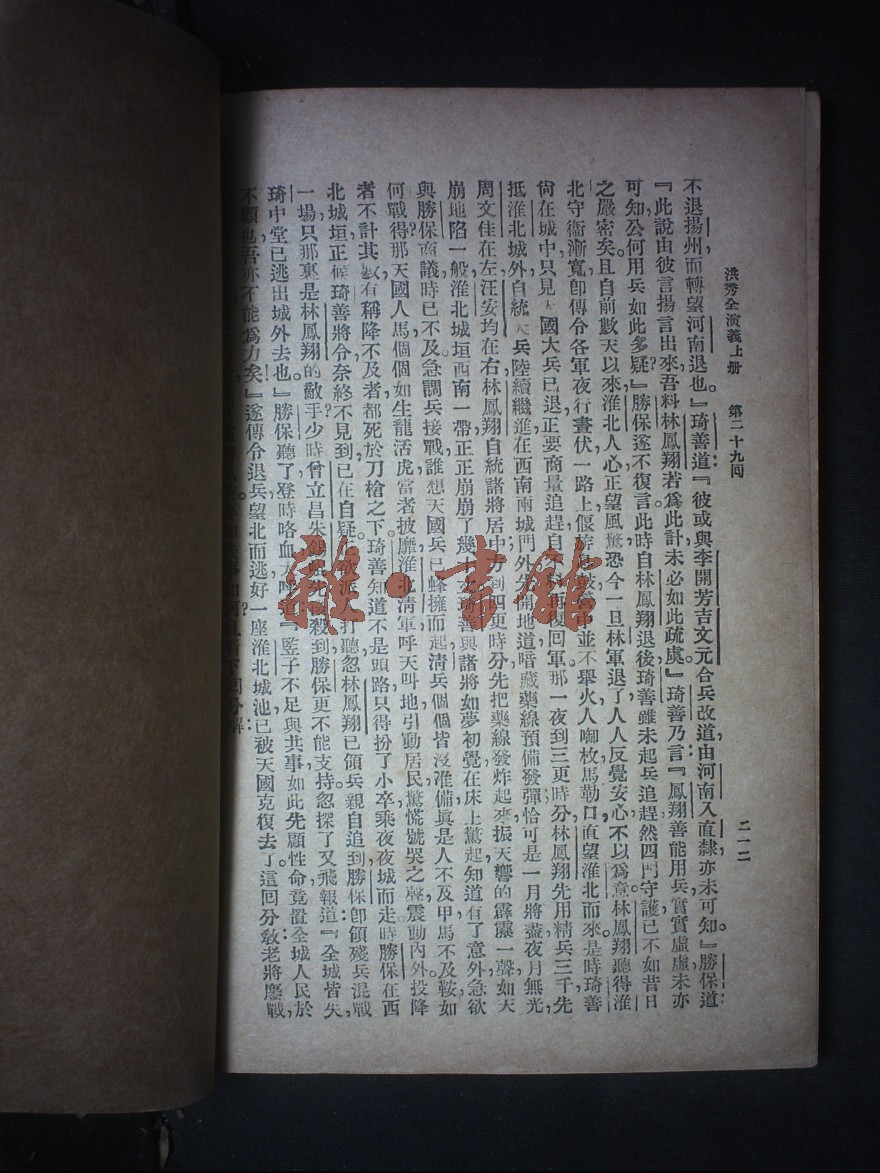 洪秀全演義上册 第二十九回 二一二
不退揚州而轉望河南退也。』琦善道：『彼或與李開芳吉文元合兵改道由河南入直隸亦未可知。』勝保道：
『此說由彼言揚言出來吾料林鳳翔若爲此計未必如此疏虞。』琦善乃言：『鳳翔善能用兵實實虛虛未亦
可知公何用兵如此多疑？』勝保遂不復言。此時自林鳳翔退後琦善雖未起兵追趕然四門守護已不如昔日
之嚴密矣。且自前數天以來淮北人心正望風驚恐今一旦林軍退了人人反覺安心不以爲意。林鳳翔聽得淮
北守衛漸寬卽傳令各軍夜行晝伏一路上偃旗息鼓營中並不舉火人啣枚馬勒口直望淮北而來。是時琦善
尙在城中只見天國大兵已退正要商量追趕自不料再復回軍。那一夜到三更時分林鳳翔先用精兵三千先
抵淮北城外自統大兵陸續繼進在西南兩城門外先開地道暗藏藥線預備發彈恰可是一月將盡夜月無光
周文佳在左汪安均在右林鳳翔自統諸將居中方到四更時分先把藥線發炸起來振天響的霹靂一聲如天
崩地陷一般淮北城垣西南一帶正正崩崩了幾十丈琦善與諸將如夢初覺在床上驚起知道有了意外急欲
與勝保商議時已不及急調兵接戰誰想天國兵已蜂擁而起清兵個個皆沒准備眞是人不及甲馬不及鞍如
何戰得那天國人馬個個如生龍活虎當者披靡淮北淸軍呼天叫地引動居民驚慌號哭之聲震動內外投降
者不計其數有稱降不及者都死於刀槍之下琦善知道不是頭路只得扮了小卒乘夜夜城而走時勝保在西
北城垣正候琦善將令奈終不見到已在自疑正欲派人打聽忽林鳳翔已領兵親自追到勝保卽領殘兵混戰
一場只那裏是林鳳翔的敵手少時曾立昌朱錫錕先後殺到勝保更不能支持忽探子又飛報道：『全城皆失
琦中堂已逃出城外去也。』勝保聽了登時咯血大呼道：『豎子不足與共事如此先顧性命竟置全城人民於
不顧也吾亦不能爲力矣！』遂傳令退兵望北而逃好一座淮北城池已被天國克復去了。這回分敎：老將鏖戰，